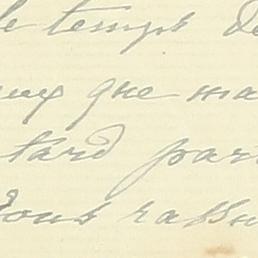 le temps de
que ma
tard par
Vous rassu